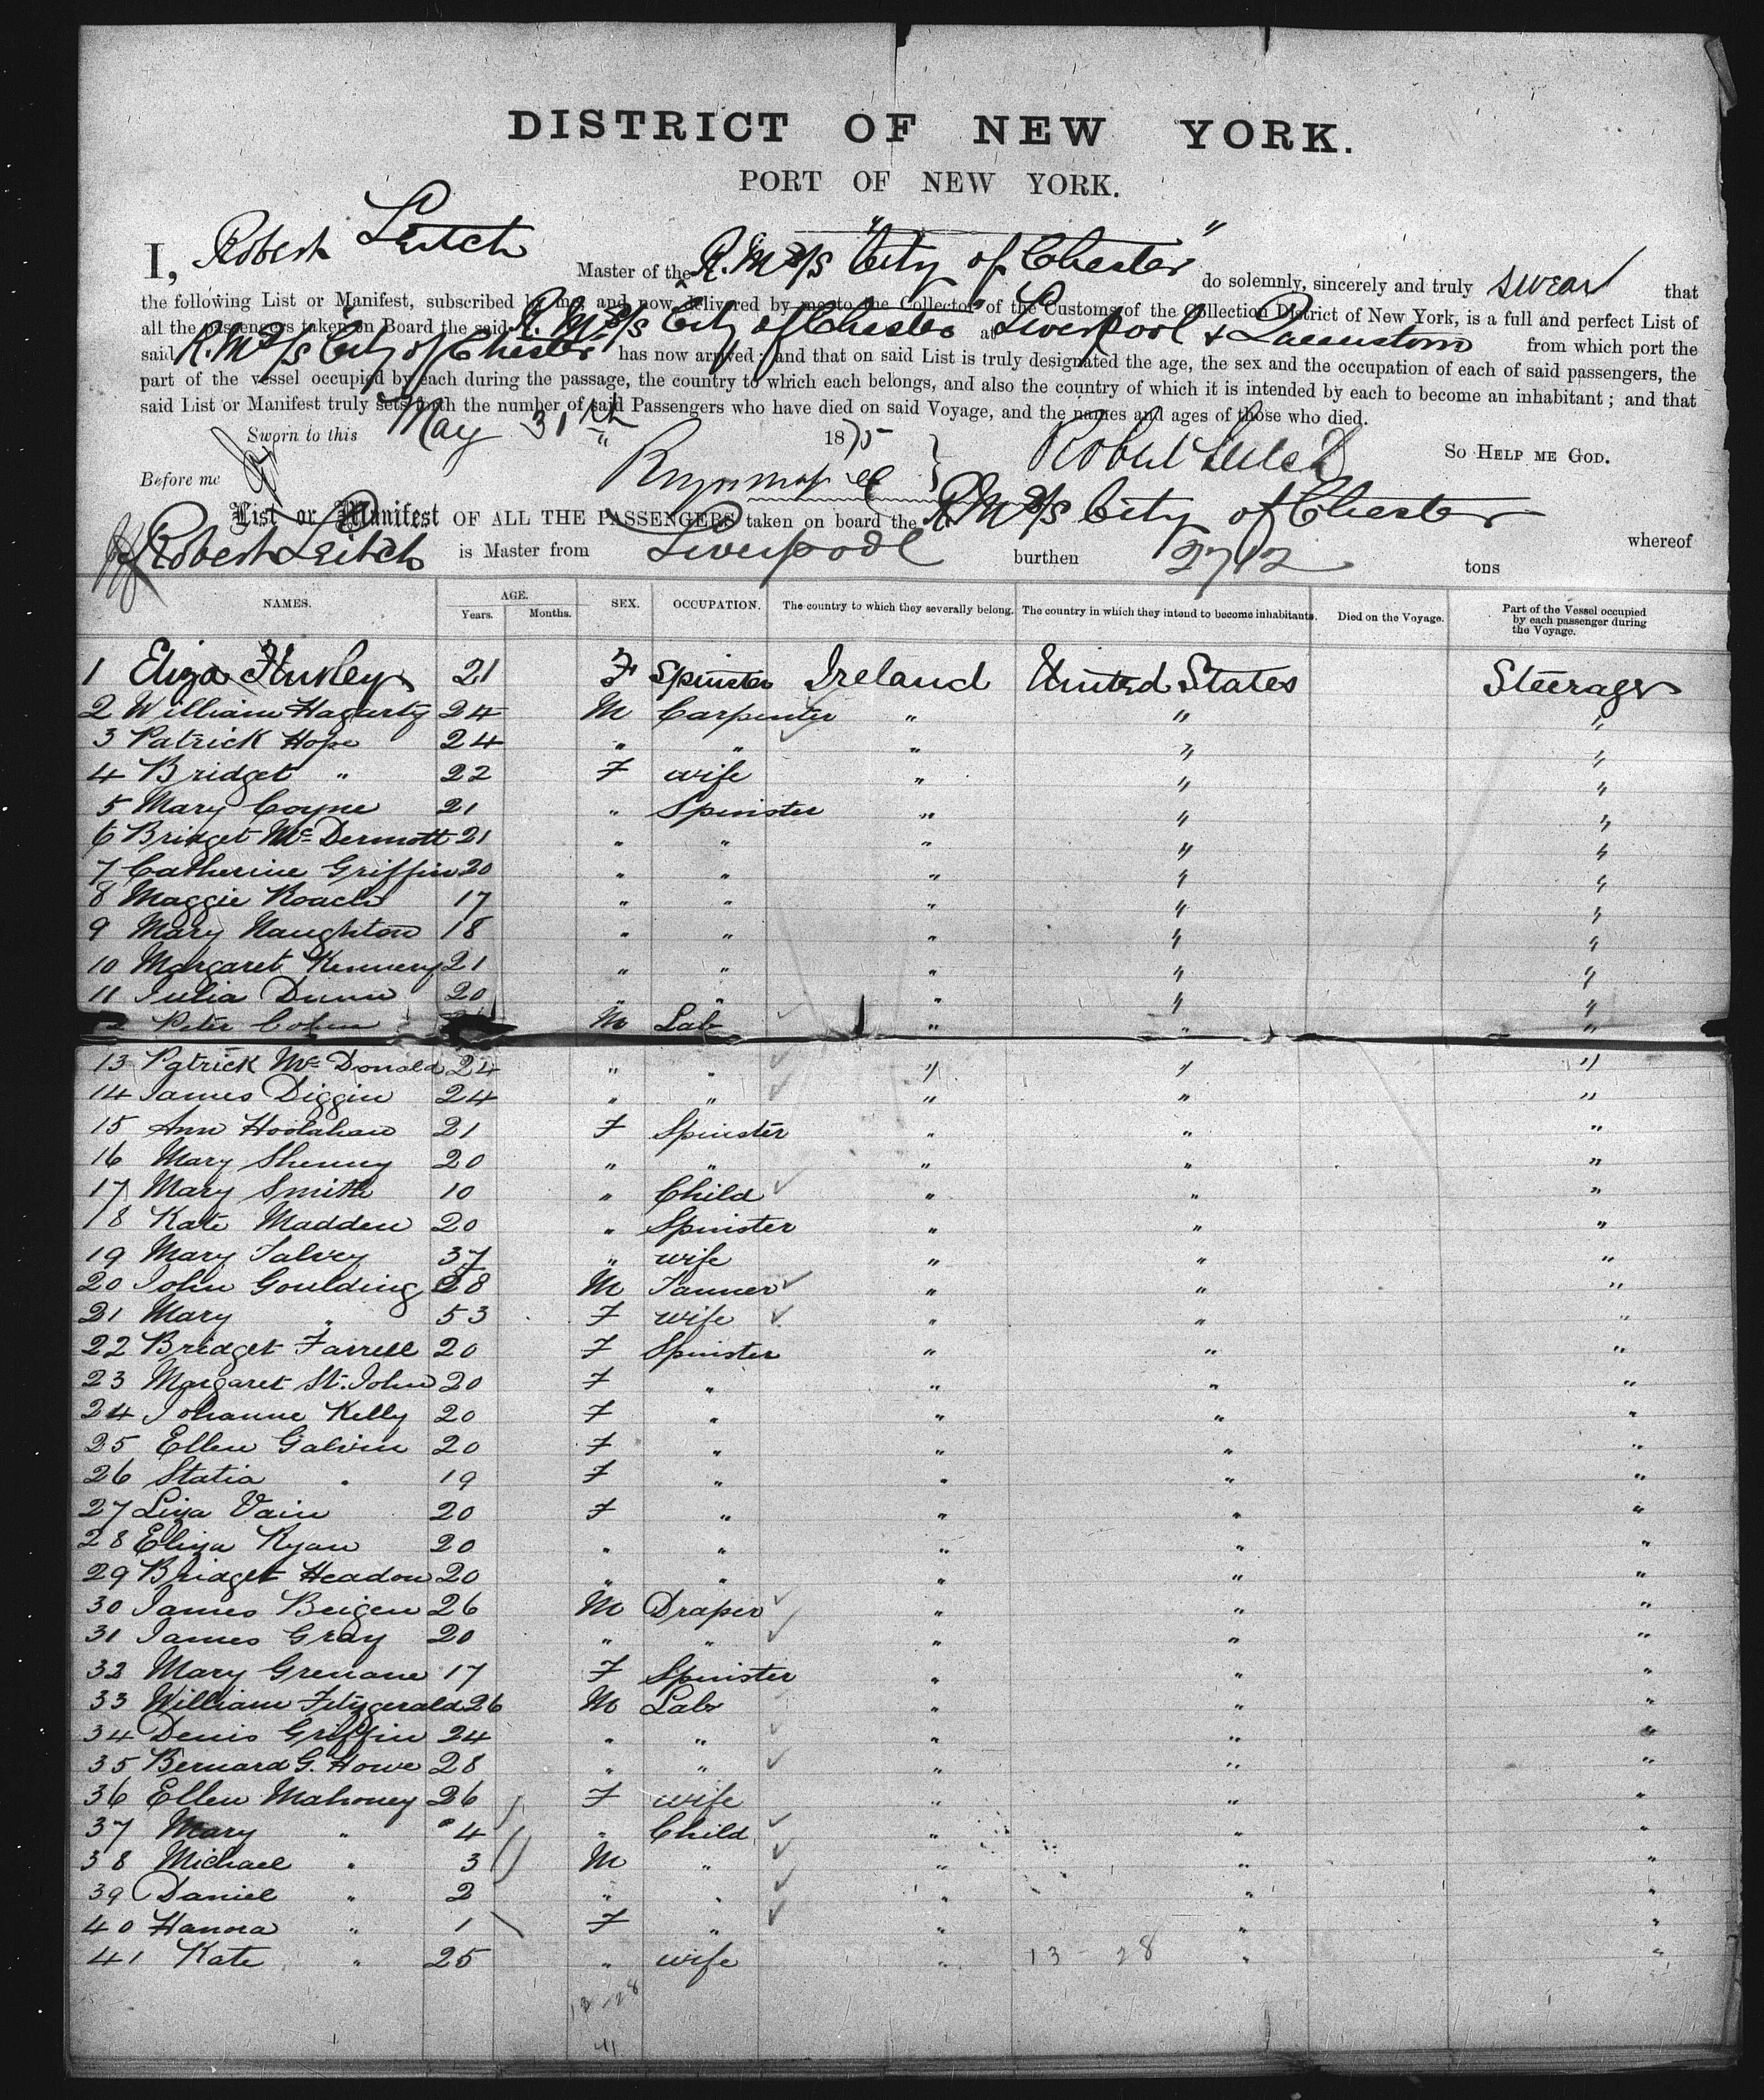 DISTRICT OF NEW YORK.
PORT OF NEW YORK.
I, Robert Leitch Master of the R.M S/S "City of Chester" do solemnly, sincerely and truly swear that
the following List or Manifest, subscribed by me, and now delivered by me to the Collector of the Customs of the Collection District of New York, is a full and perfect List of
all the passengers taken on Board the said R.M S/S City of Chester at Liverpool & Queenstown from which port the
said R.M S/S City of Chester has now arrived; and that on said List is truly designated the age, the sex and the occupation of each of said passengers, the
part of the vessel occupied by each during the passage, the country to which each belongs, and also the country of which it is intended by each to become an inhabitant; and that
said List or Manifest truly sets forth the number of said Passengers who have died on said Voyage, and the names and ages of those who died.
Sworn to this May 31th 1875 Robert Leitch So HELP ME GOD.
Before me
List or Manifest OF ALL THE PASSENGERS taken on board the R.M S/S City of Chester whereof
Robert Leitch is Master from Liverpool burthen 2712 tons
NAMES. AGE. Years. Months. SEX. OCCUPATION. The country to which they severally belong. The country in which they intend to become inhabitants. Died on the Voyage. Part of the Vessel occupied by each passenger during the Voyage.
1 Eliza Hurley 21 F Spinster Ireland United States Steerage
2 William Hagarty 24 M Carpenter " " "
3 Patrick Hope 24 " " " " "
4 Bridget " 22 F wife " " "
5 Mary Coyne 21 " Spinster " " "
6 Bridget McDermott 21 " " " " "
7 Catherine Griffin 20 " " " " "
8 Maggie Roach 17 " " " " "
9 Mary Naughton 18 " " " " "
10 Margaret Kennery 21 " " " " "
11 Julia Dunn 20 " " " " "
Peter M Lab " " "
13 Patrick McDonald 24 " " " " "
14 James Diggin 24 " " " " "
15 Ann Hoolahan 21 F Spinster " " "
16 Mary Shenny 20 " " " " "
17 Mary Smith 10 " Child " " "
18 Kate Madden 20 " Spinster " " "
19 Mary Falvey 37 " wife " " "
20 John Goulding 28 M Tanner " " "
21 Mary " 53 F wife " " "
22 Bridget Farrell 20 F Spinster " " "
23 Margaret St. John 20 F " " " "
24 Johanne Kelly 20 F " " " "
25 Ellen Galvin 20 F " " " "
26 Statia " 19 F " " " "
27 Liza Vain 20 F " " " "
28 Eliza Ryan 20 " " " " "
29 Bridget Headon 20 " " " " "
30 James Beigen 26 M Draper " " "
31 James Gray 20 " " " " "
32 Mary Grenane 17 F Spinster " " "
33 William Fitzgerald 26 M Lab " " "
34 Denis Griffin 24 " " " " "
35 Bernard G. Howe 28 " " " " "
36 Ellen Mahoney 26 F wife " " "
37 Mary " 4 " Child " " "
38 Michael " 3 M " " " "
39 Daniel " 2 " " " " "
40 Hanora " 1 F " " " "
41 Kate " 25 " wife " 13 - 28 " "
13-28
41